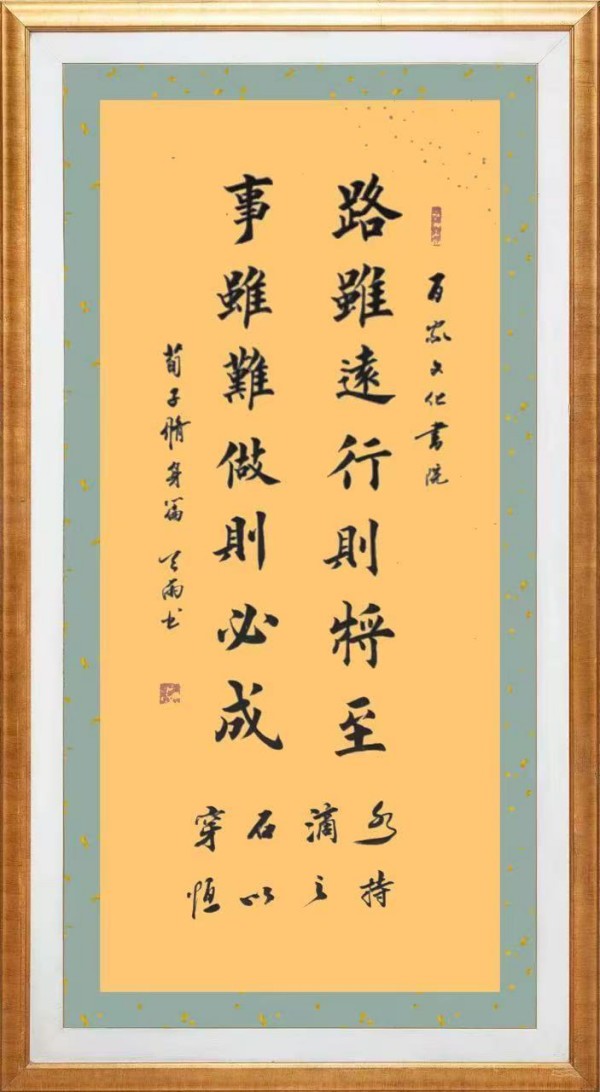 百家文化書院
路雖遠行則將至
事雖難做則必成
荀子脩身篇 天雨书
水滴石穿
持之以恒